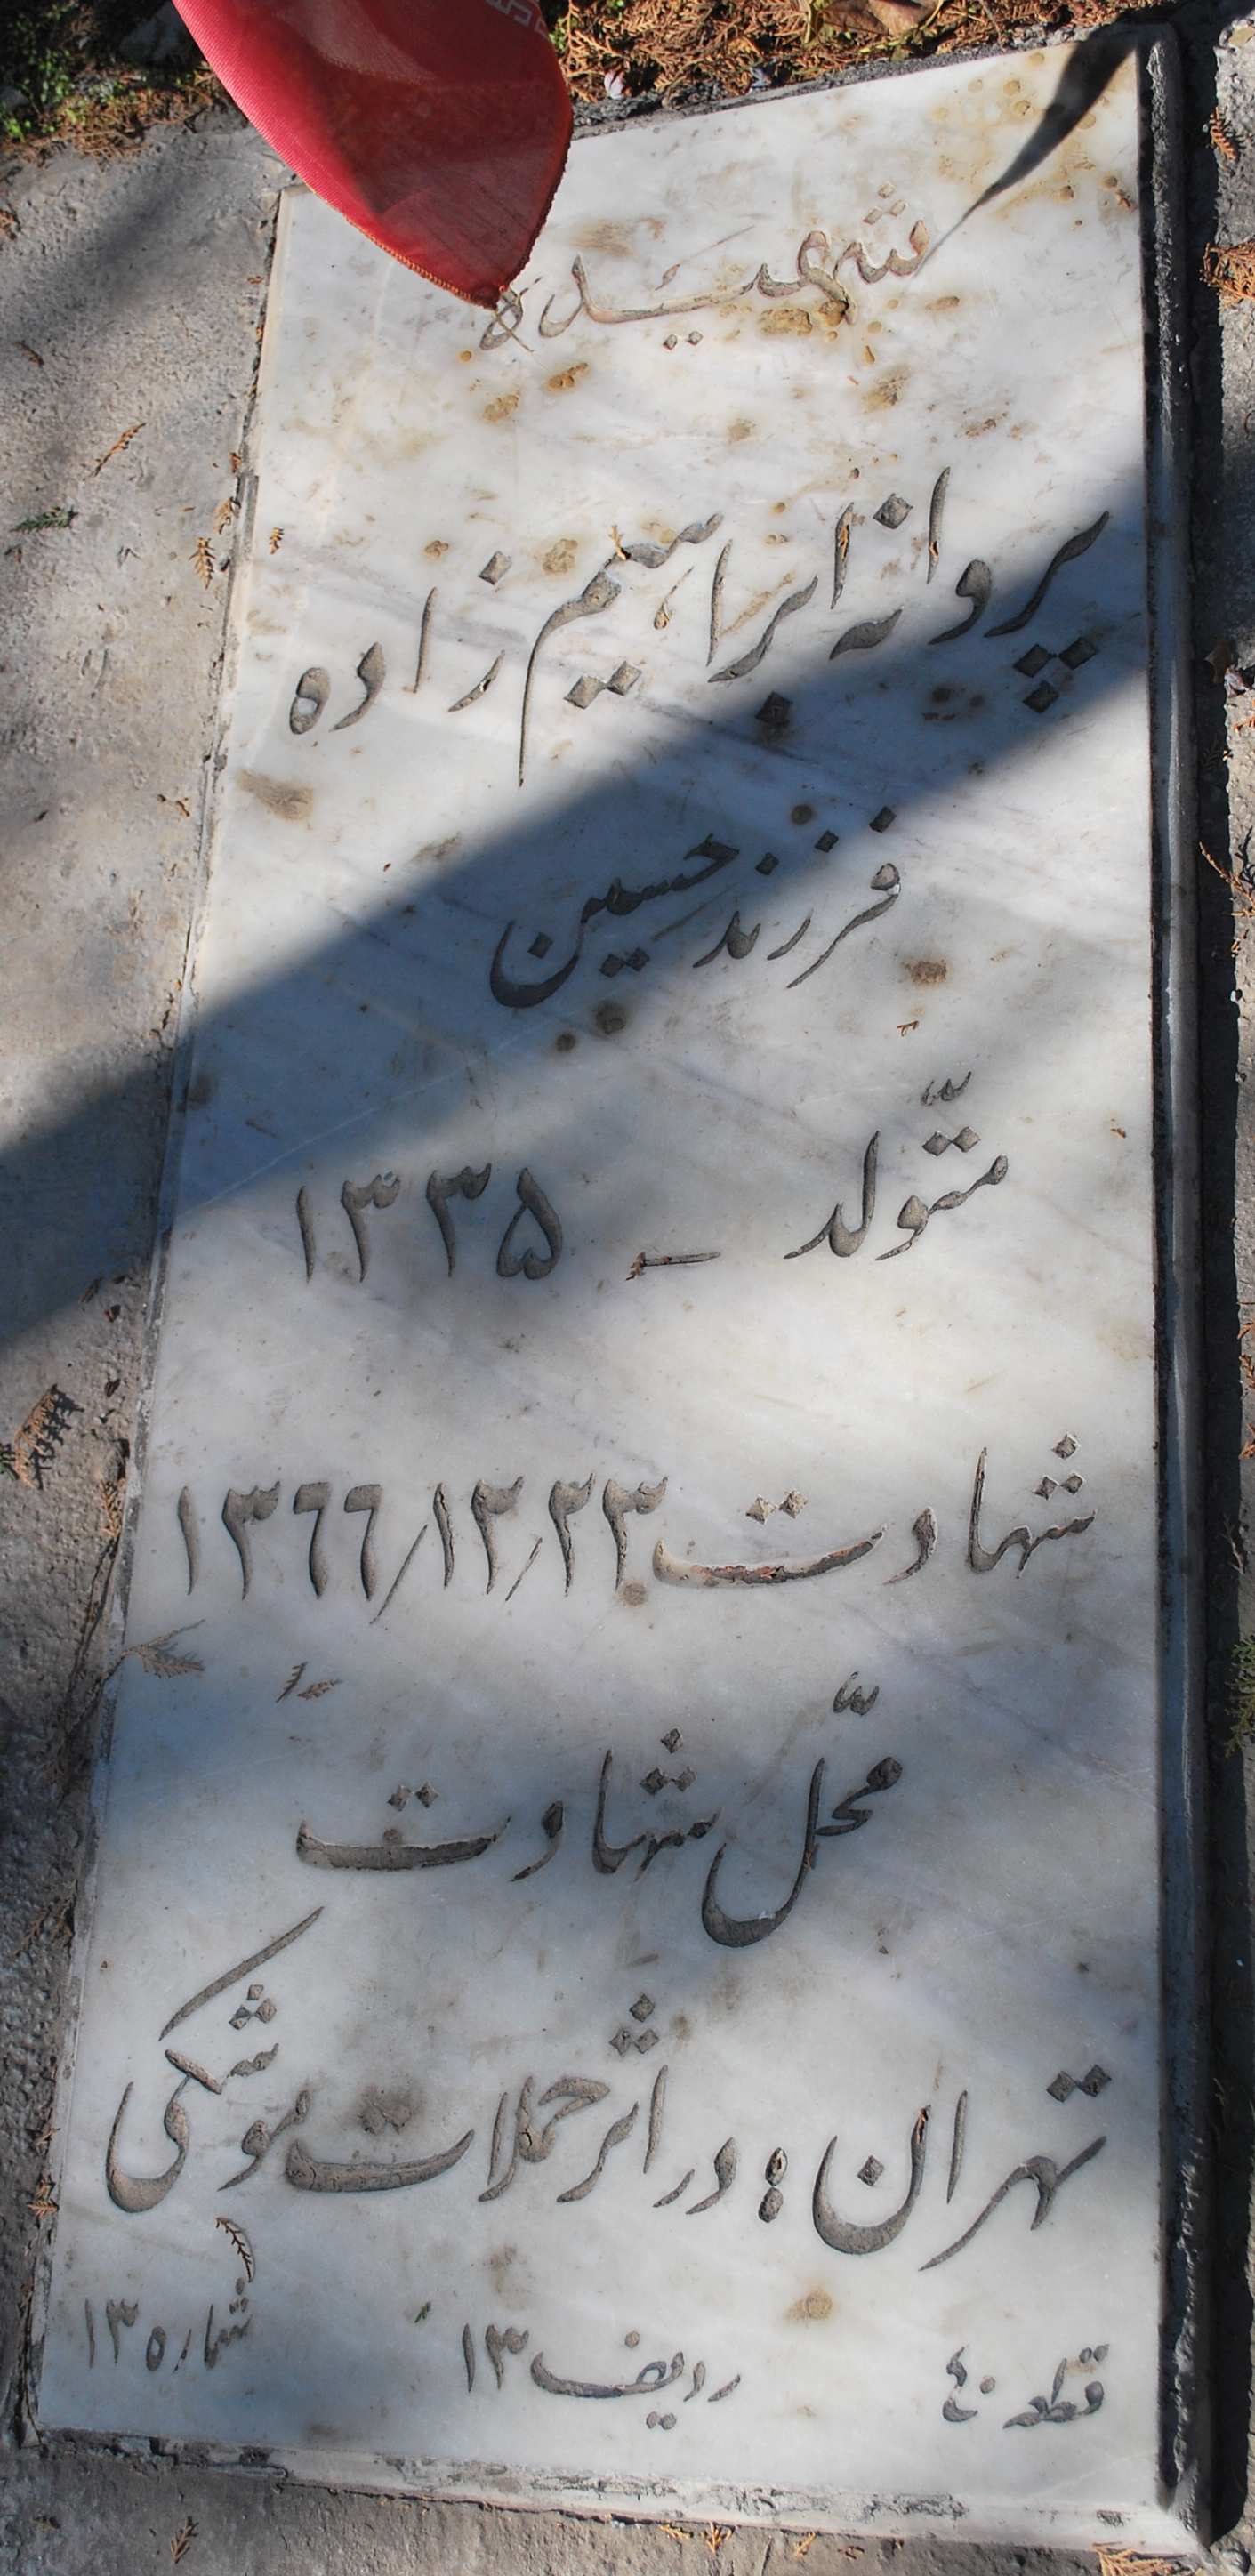 شهیده
پروانه ابراهیم زاده
فرزند حسین
متّولد – ۱۳۳۵
شهادت ۱۳۶۶/۱۲/۲۳
محّل شهادت
تهران: در اثر حملات موشکی
قطعه ۴۰ ردیف ۱۳ شماره ۱۳